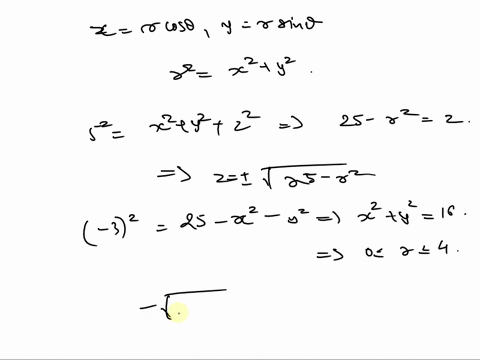 x = r cosθ, y = r sinθ
r² = x² + y².
5² = x² + y² + z² => 25 - r² = z.
=> z = ± √25 - r²
(-3)² = 25 - x² - y² => x² + y² = 16.
=> 0 ≤ r ≤ 4.
-√